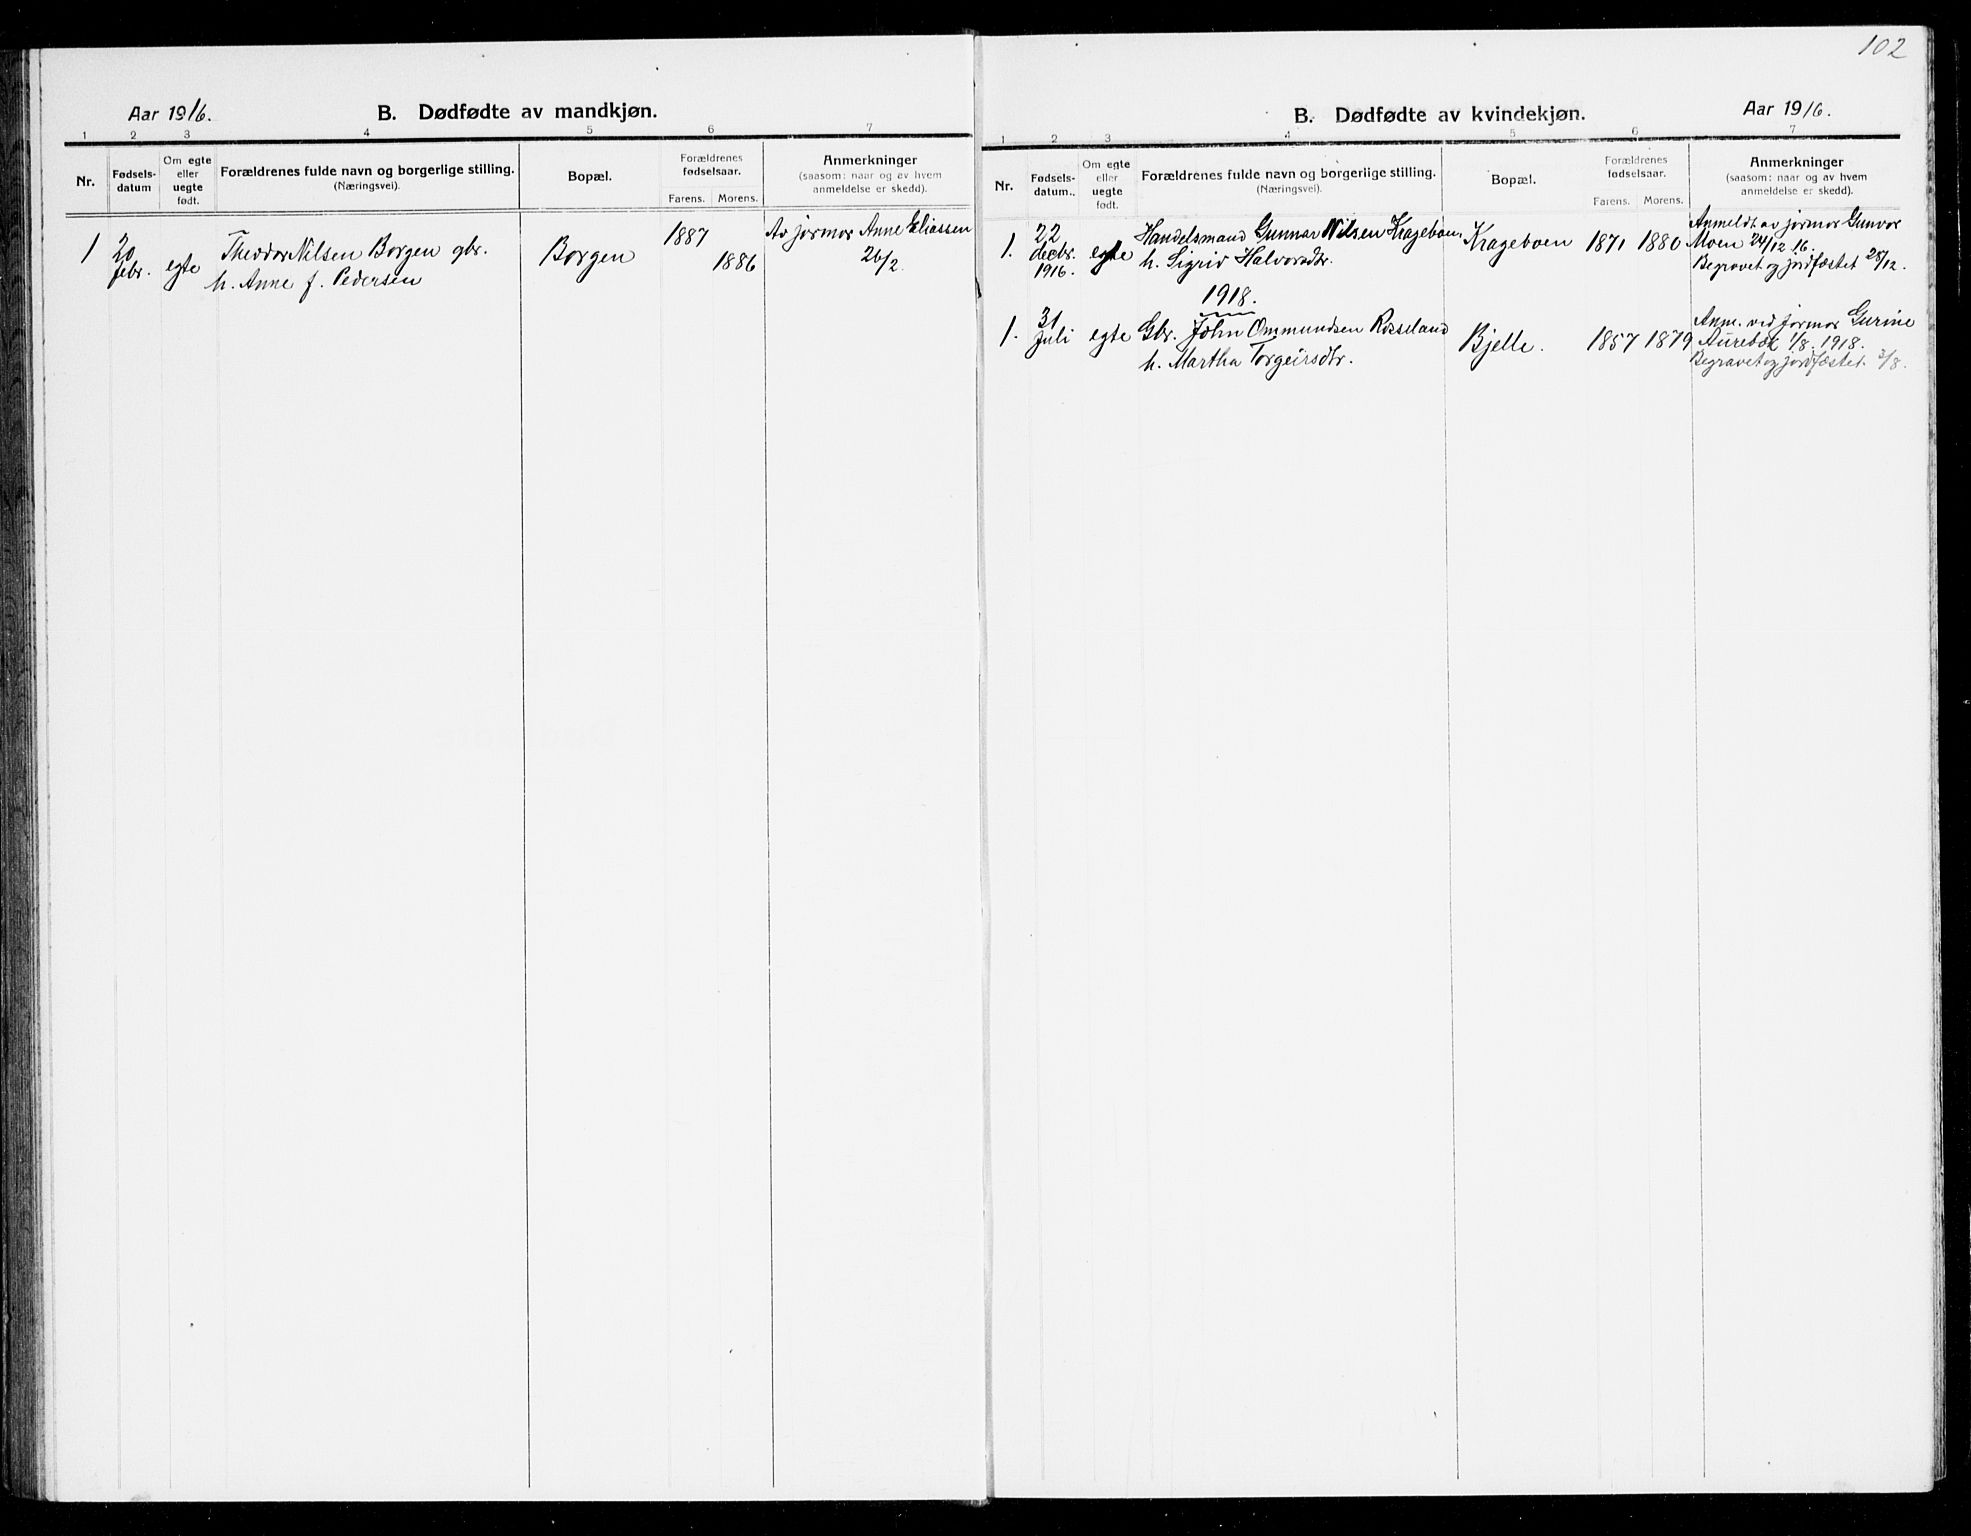 102
Aar 1916.
B. Dødfødte av mandkjøn.
1 2 3 4 5 6 7
Nr.
Fødsels-
datum
Om egte
eller
uegte
født.
Forældrenes fulde navn og borgerlige stilling.
(Næringsvei).
Bopæl.
Forældrenes
fødselsaar.
Farens. Morens.
Anmerkninger
(saasom: naar og av hvem
anmeldelse er skedd).
1
20
febr.
egte
Theodor Nilsen Borgen gbr.
h. Anne f. Pedersen
Borgen
1887
1886
Av jormor Anne Eliassen
26/2
B. Dødfødte av kvindekjøn.
Aar 1916.
1 2 3 4 5 6 7
Nr.
Fødsels-
datum.
Om egte
eller
uegte
født.
Forældrenes fulde navn og borgerlige stilling.
(Næringsvei).
Bopæl.
Forældrenes
fødselsaar.
Farens. Morens.
Anmerkninger
(saasom: naar og av hvem
anmeldelse er skedd).
1.
22
decbr.
1916.
egte
Handelsmand Gunnar Nilsen Krageboen.
h. Sigrid Halvorsdtr.
Krageboen
1871
1880
Anmeldt av jormor Gunvor
Moen 24/12 16.
Begravet og jordfæstet 28/12.
1918.
1.
31
Juli
egte
Gbr. John Ommundsen Rosseland
h. Martha Torgeirsdtr.
Bjelle.
1857
1879
Anm. ved jormor Gurine
Aurebæk 1/8. 1918.
Begravet og jordfæstet 3/8.